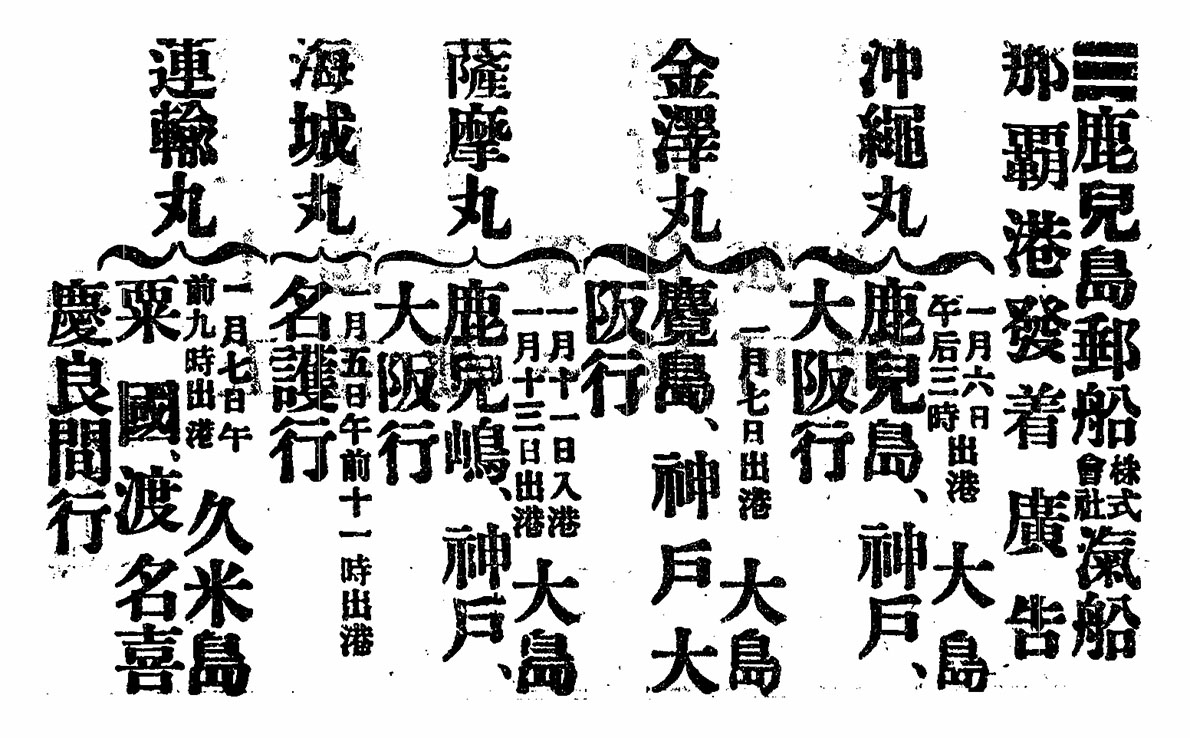 鹿兒島郵船株式會社滊船
那覇港發着廣告
沖繩丸
一月六日午后三時出港
大島
鹿兒島、神戸、
大阪行
金澤丸
一月七日出港
大島
麑島、神戸大
阪行
薩摩丸
一月十一日入港
一月十三日出港
大島
鹿兒嶋、神戸、
大阪行
海城丸
一月五日午前十一時出港
名護行
運輸丸
一月七日午
前九時出港
久米島
粟國、渡名喜
慶良間行